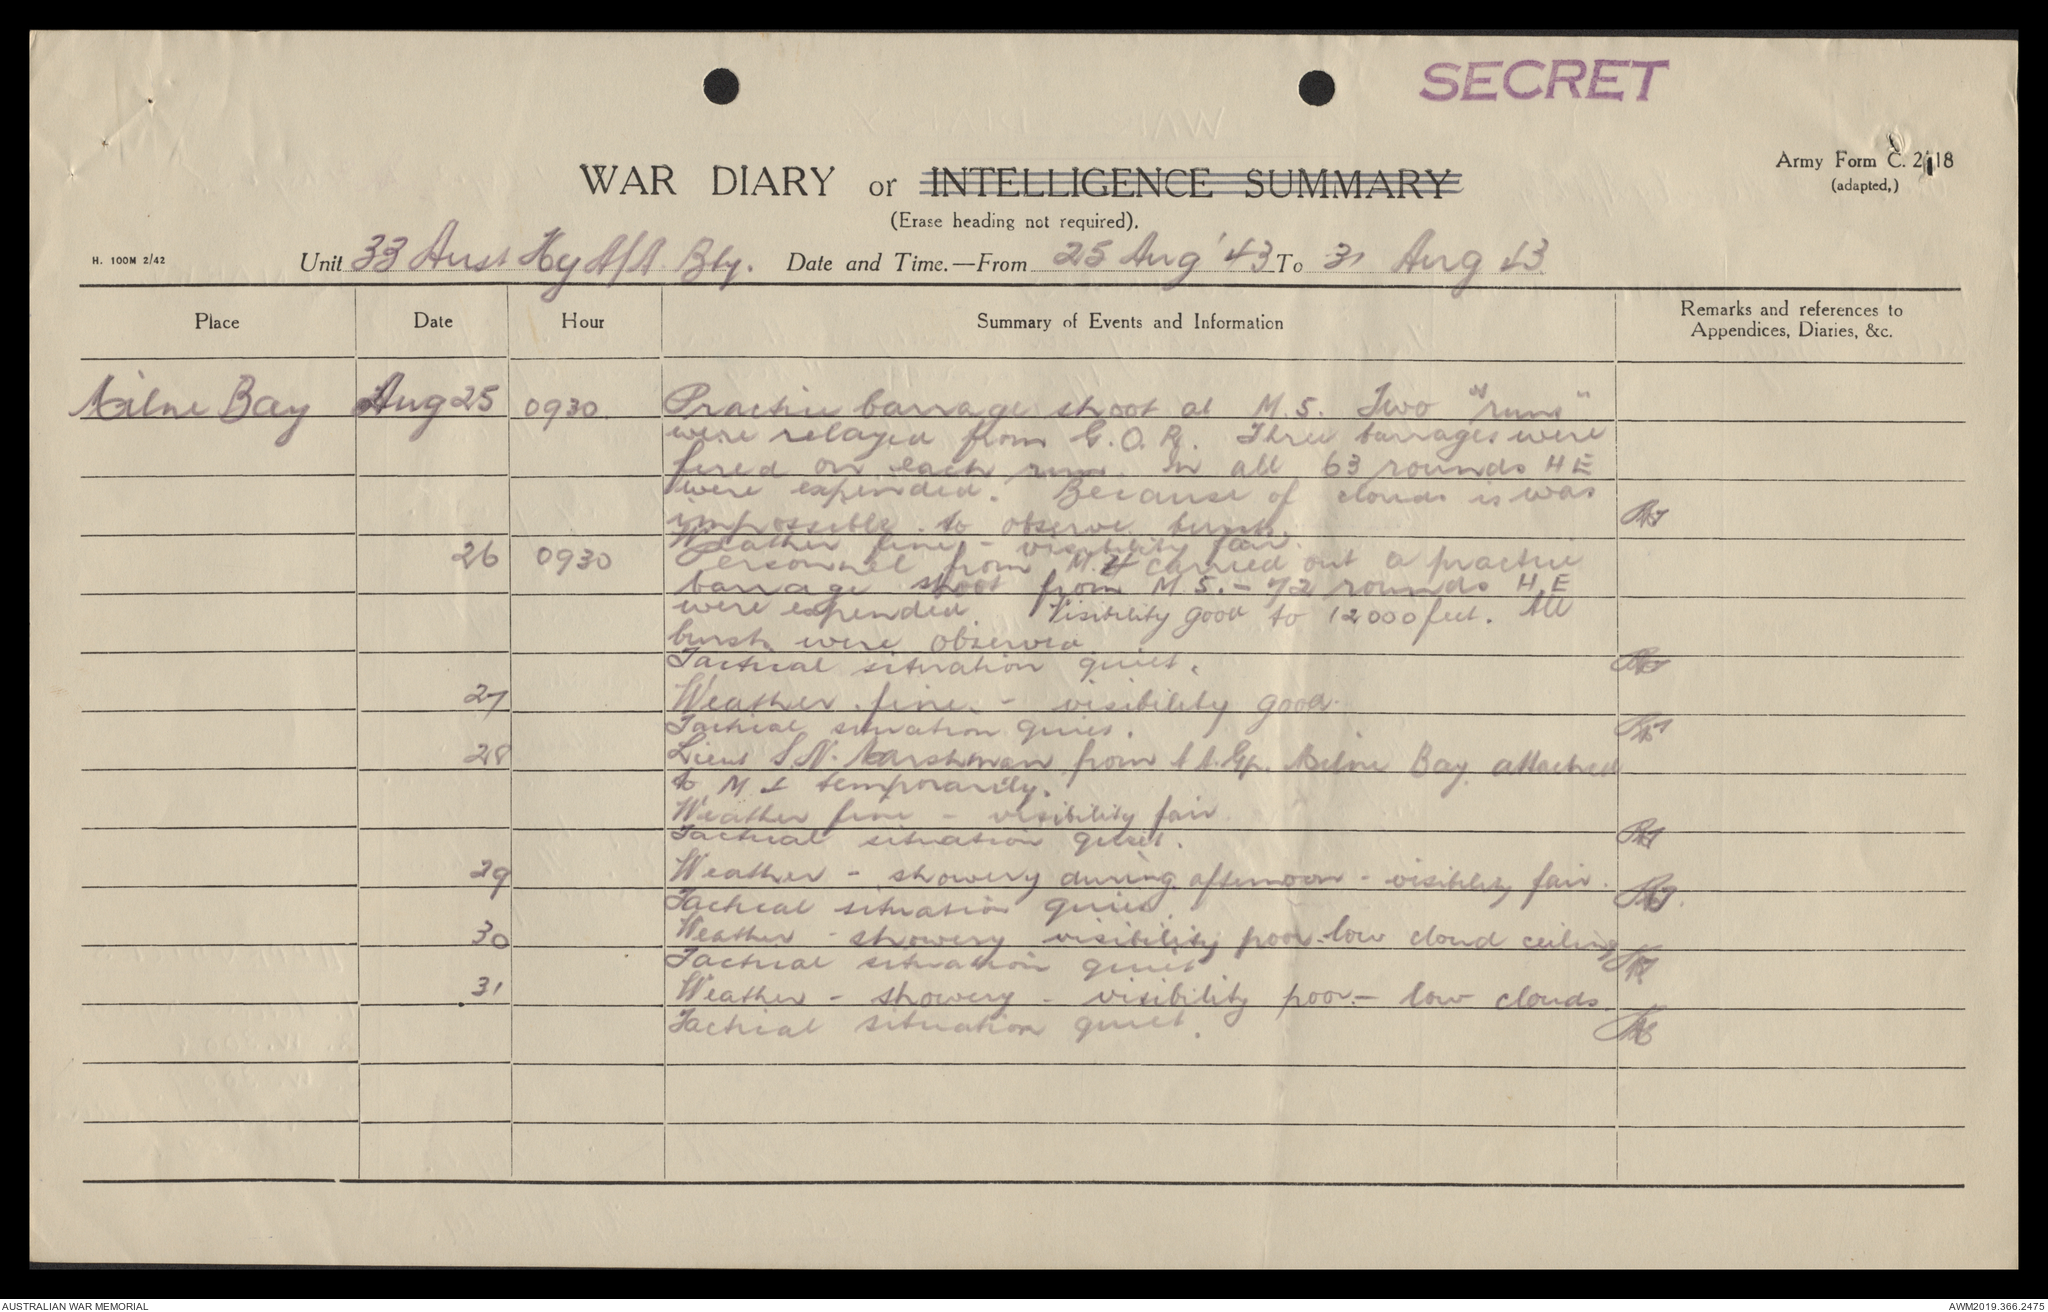 SECRET
Army Form C. 2118
(adapted,)
WAR DIARY or INTELLIGENCE SUMMARY
(Erase heading not required).
H. 100M 2/42
Unit 33 Aust Hy A/A Bty. Date and Time.—From 25 Aug '43 To 31 Aug 43
Place Date Hour Summary of Events and Information Remarks and references to
Appendices, Diaries, &c.
Milne Bay Aug 25 0930 Practice barrage shoot at M.5. Two "runs"
were relayed from G.O.R. Three barrages were
fired on each run. In all 63 rounds HE
were expended. Because of clouds is was
impossible to observe bursts.
Weather fine - visibility fair.
26 0930 Personnel from M.4 carried out a practice
barrage shoot from M 5. - 72 rounds H.E
were expended. Visibility good to 12000 feet. All
bursts were observed
Tactical situation quiet.
27 Weather fine - visibility good.
Tactical situation quiet.
28 Lieut S N. Marshman from A A. Gp. Milne Bay attached
to M temporarily.
Weather fine - visibility fair.
Tactical situation quiet.
29 Weather - showery during afternoon - visibility fair.
Tactical situation quiet.
30 Weather - showery visibility poor - low cloud ceiling
Tactical situation quiet
31 Weather - showery - visibility poor - low clouds.
Tactical situation quiet.
AUSTRALIAN WAR MEMORIAL
AWM2019.366.2475